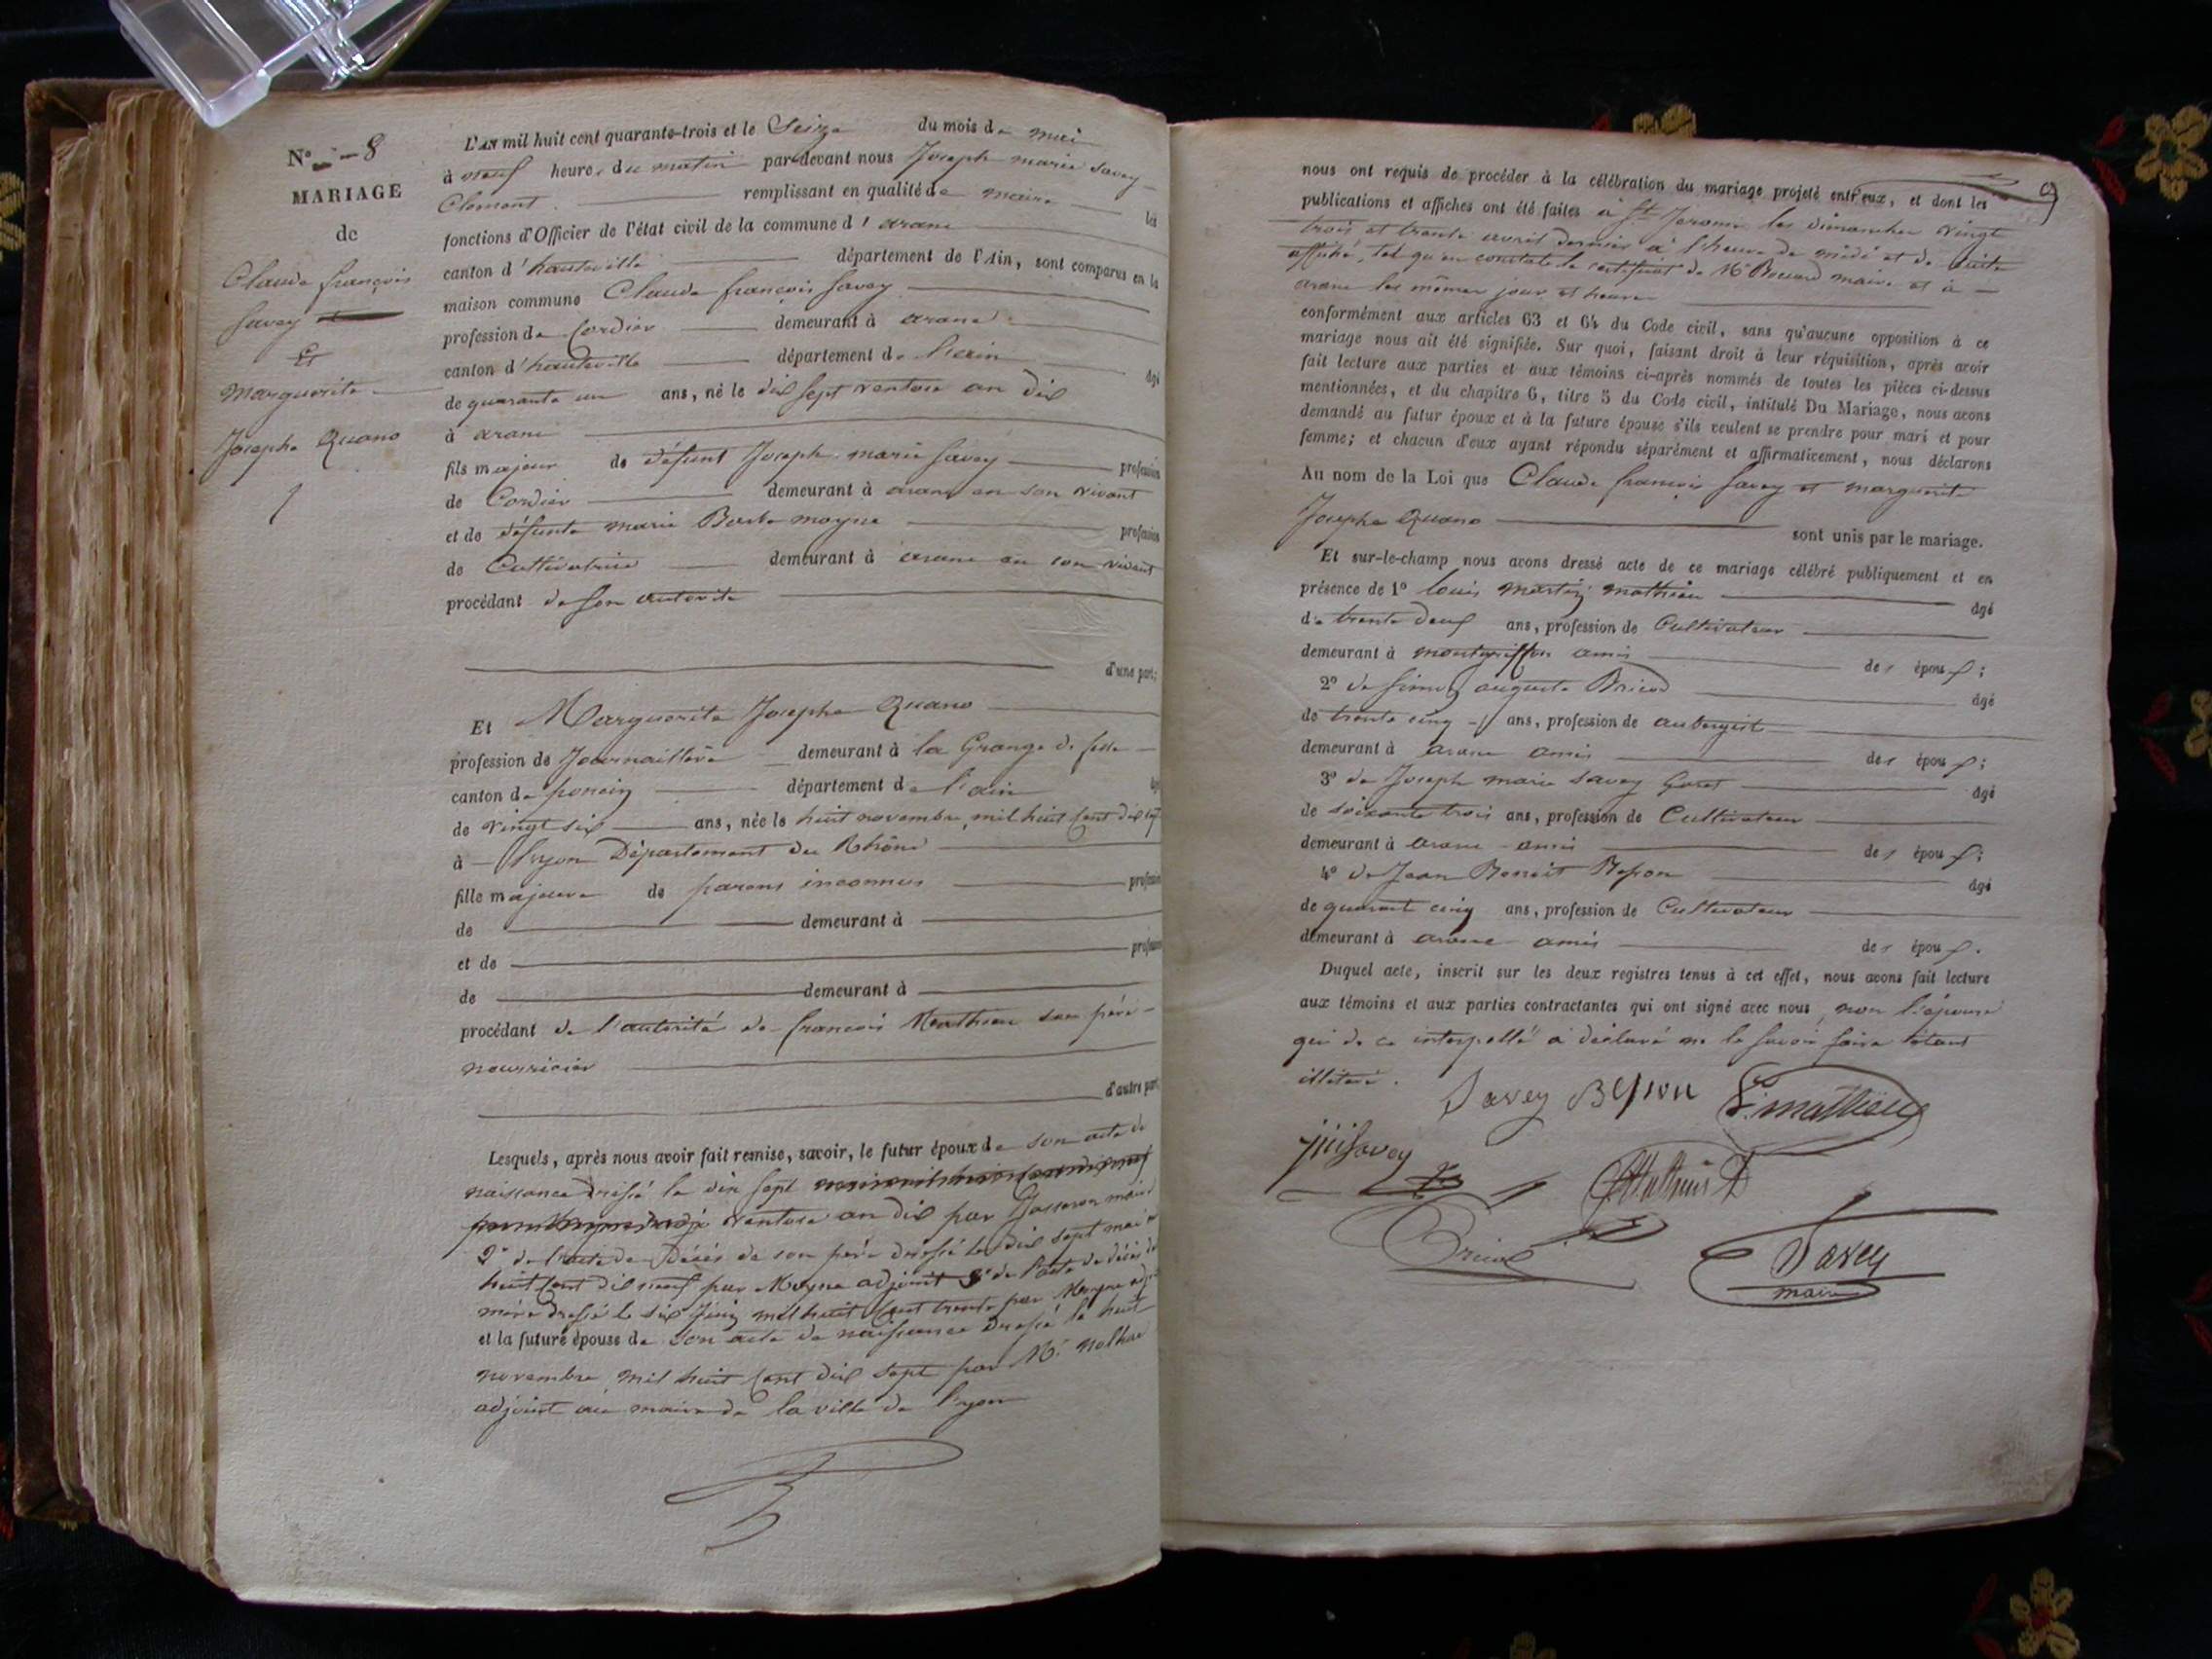 N° 8
MARIAGE
de
Claude françois
Savey
Et
Marguerite
Josephe Quano
L'AN mil huit cent quarante-trois et le Seize du mois de mai
à neuf heures du matin par-devant nous Joseph marie Savey
Clement remplissant en qualité de maire les
fonctions d'Officier de l'état civil de la commune d'arane
canton d'hauteville département de l'Ain, sont comparus en la
maison commune Claude françois Savey
profession de Cordier demeurant à arane
canton d'hauteville département de l'ain âgé
de quarante un ans, né le dix sept ventose an dix
à arane
fils majeur de défunt Joseph marie Savey profession
de Cordier demeurant à arane en son vivant
et de défunte marie Moyne profession
de Cultivatrice demeurant à arane en son vivant
procédant de son autorité
d'une part;
Et Marguerite Josephe Quano
profession de Journaillère demeurant à la Grange de
canton de poncin département de l'ain
de vingt six ans, née le huit novembre mil huit cent dix sept
à Lyon Département du Rhône
fille majeure de parens inconnus profession
de demeurant à
et de profession
de demeurant à
procédant de l'autorité de françois Mathieu son père
nourricier
d'autre part.
Lesquels, après nous avoir fait remise, savoir, le futur époux de son acte de
naissance dressé le dix sept
ventose an dix par Josseron maire
2° de l'acte de Décès de son père dressé le dix sept mai
huit cent dix neuf par Moyne adjoint 3° de l'acte de décès de
mère dressé le six Juin mil huit cent trente par Moyne
et la future épouse de son acte de naissance dressé le huit
novembre mil huit cent dix sept par Mr.
adjoint au maire de la ville de Lyon
9
nous ont requis de procéder à la célébration du mariage projeté entr'eux, et dont les
publications et affiches ont été faites à St Jerome les dimanches vingt
trois et trente avril dernier à l'heure de midi et de suite
affiché, tel qu'en constate le certificat de Mr maire et à
arane les mêmes jour et heure
conformément aux articles 63 et 64 du Code civil, sans qu'aucune opposition à ce
mariage nous ait été signifiée. Sur quoi, faisant droit à leur réquisition, après avoir
fait lecture aux parties et aux témoins ci-après nommés de toutes les pièces ci-dessus
mentionnées, et du chapitre 6, titre 5 du Code civil, intitulé Du Mariage, nous avons
demandé au futur époux et à la future épouse s'ils veulent se prendre pour mari et pour
femme; et chacun d'eux ayant répondu séparément et affirmativement, nous déclarons
Au nom de la Loi que Claude françois Savey et marguerite
Josephe Quano sont unis par le mariage.
Et sur-le-champ nous avons dressé acte de ce mariage célébré publiquement et en
présence de 1° louis martin mathieu âgé
de trente deux ans, profession de Cultivateur
demeurant à montgriffon amis des époux;
2° de Simon auguste Bricod âgé
de trente cinq ans, profession de aubergist
demeurant à arane amis des époux;
3° de Joseph marie Savey Goret âgé
de soixante trois ans, profession de Cultivateur
demeurant à arane amis des époux;
4° de Jean Benoit Beyson âgé
de quarant cinq ans, profession de Cultivateur
demeurant à arane amis des époux.
Duquel acte, inscrit sur les deux registres tenus à cet effet, nous avons fait lecture
aux témoins et aux parties contractantes qui ont signé avec nous, non l'épouse
qui de ce interpellé a déclaré ne le savoir faire étant
illitéré.
Savey Beyson L. mathieu
Savey
Mathieu
Bricod
Savey
maire